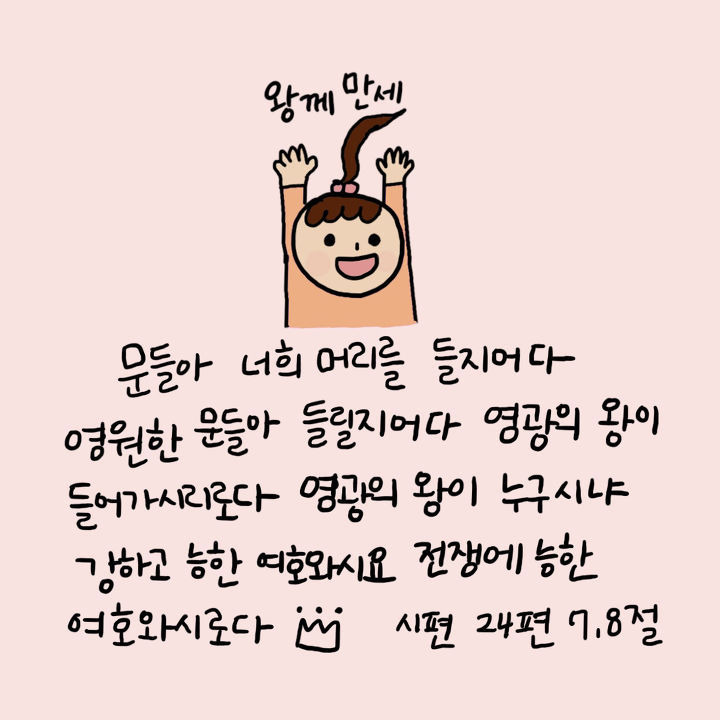 왕께 만세
문들아 너희 머리를 들지어다
영원한 문들아 들릴지어다 영광의 왕이
들어가시리로다 영광의 왕이 누구시냐
강하고 능한 여호와시요 전쟁에 능한
여호와시로다 시편 24편 7,8절